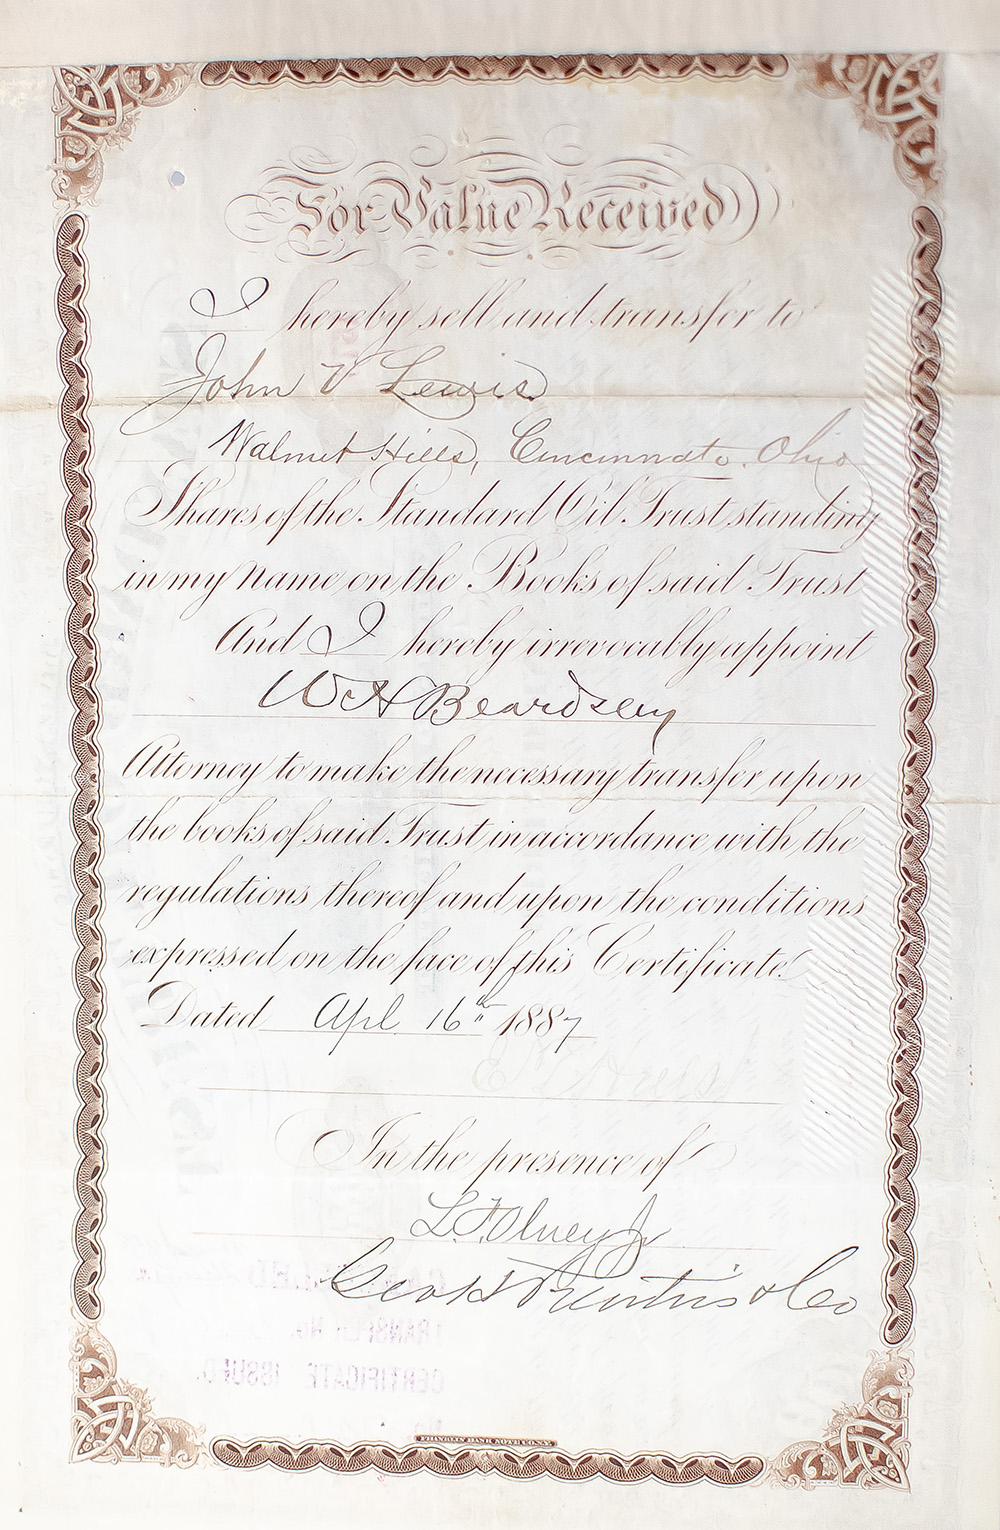 For Value Received
I hereby sell and transfer to
John V Lewis
Walnut Hills, Cincinnati, Ohio
Shares of the Standard Oil Trust standing
in my name on the Books of said Trust
And I hereby irrevocably appoint
W H Beardsley
Attorney to make the necessary transfer upon
the books of said Trust in accordance with the
regulations thereof and upon the conditions
expressed on the face of this Certificate.
Dated Apl 16th 1887
In the presence of
L. F. Olney Jr
Geo H Prentiss & Co
FRANKLIN BANK NOTE CO. N.Y.
TRANSFER NO.
CERTIFICATE ISSUED.